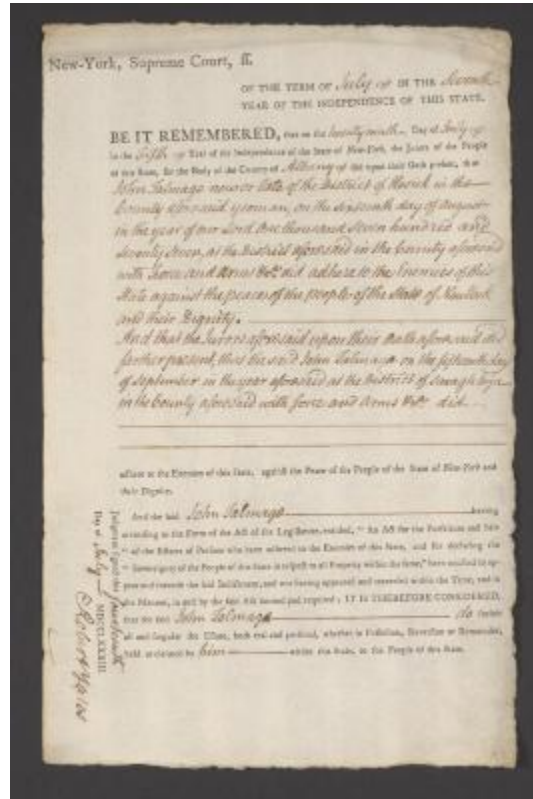 New-York, Supreme Court, ss.
OF THE TERM OF July IN THE Seventh
YEAR OF THE INDEPENDENCE OF THIS STATE.
BE IT REMEMBERED, that on the twenty ninth Day of July
in the fifth Year of the Independence of the State of New-York, the Jurors of the People
of this State, for the Body of the County of Albany upon their Oath present, that
John Talmage late of the District of Hosick in the
County aforesaid yeoman, on the sixteenth day of August
in the year of our Lord One thousand seven hundred and
seventy seven, at the District aforesaid in the County aforesaid
with force and Arms &c. did adhere to the Enemies of this
State against the peace of the people of the State of New York
and their Dignity.
And that the Jurors aforesaid upon their Oath aforesaid do
farther present, that the said John Talmage on the fifteenth day
of September in the year aforesaid at the District of
in the County aforesaid with force and Arms &c. did
adhere to the Enemies of this State, against the Peace of the People of the State of New-York and
their Dignity.
And the said John Talmage having
according to the Form of the Act of the Legislature, entitled, "An Act for the Forfeiture and Sale
"of the Estates of Persons who have adhered to the Enemies of this State, and for declaring the
"Sovereignty of the People of this State in respect to all Property within the same," been notified to ap-
pear and traverse the said Indictment, and not having appeared and traversed within the Time, and in
the Manner, in and by the said Act limited and required; IT IS THEREFORE CONSIDERED,
that the said John Talmage do forfeit
all and singular the Estate, both real and personal, whether in Possession, Reversion or Remainder,
held or claimed by him within this State, to the People of this State.
Judgment signed this fourteenth
Day of July MDCCLXXXIII
Robert Yates